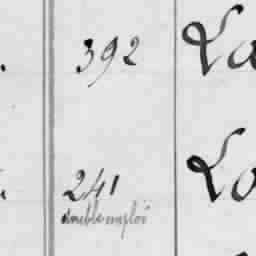 392 La
241 Lo
double emploi